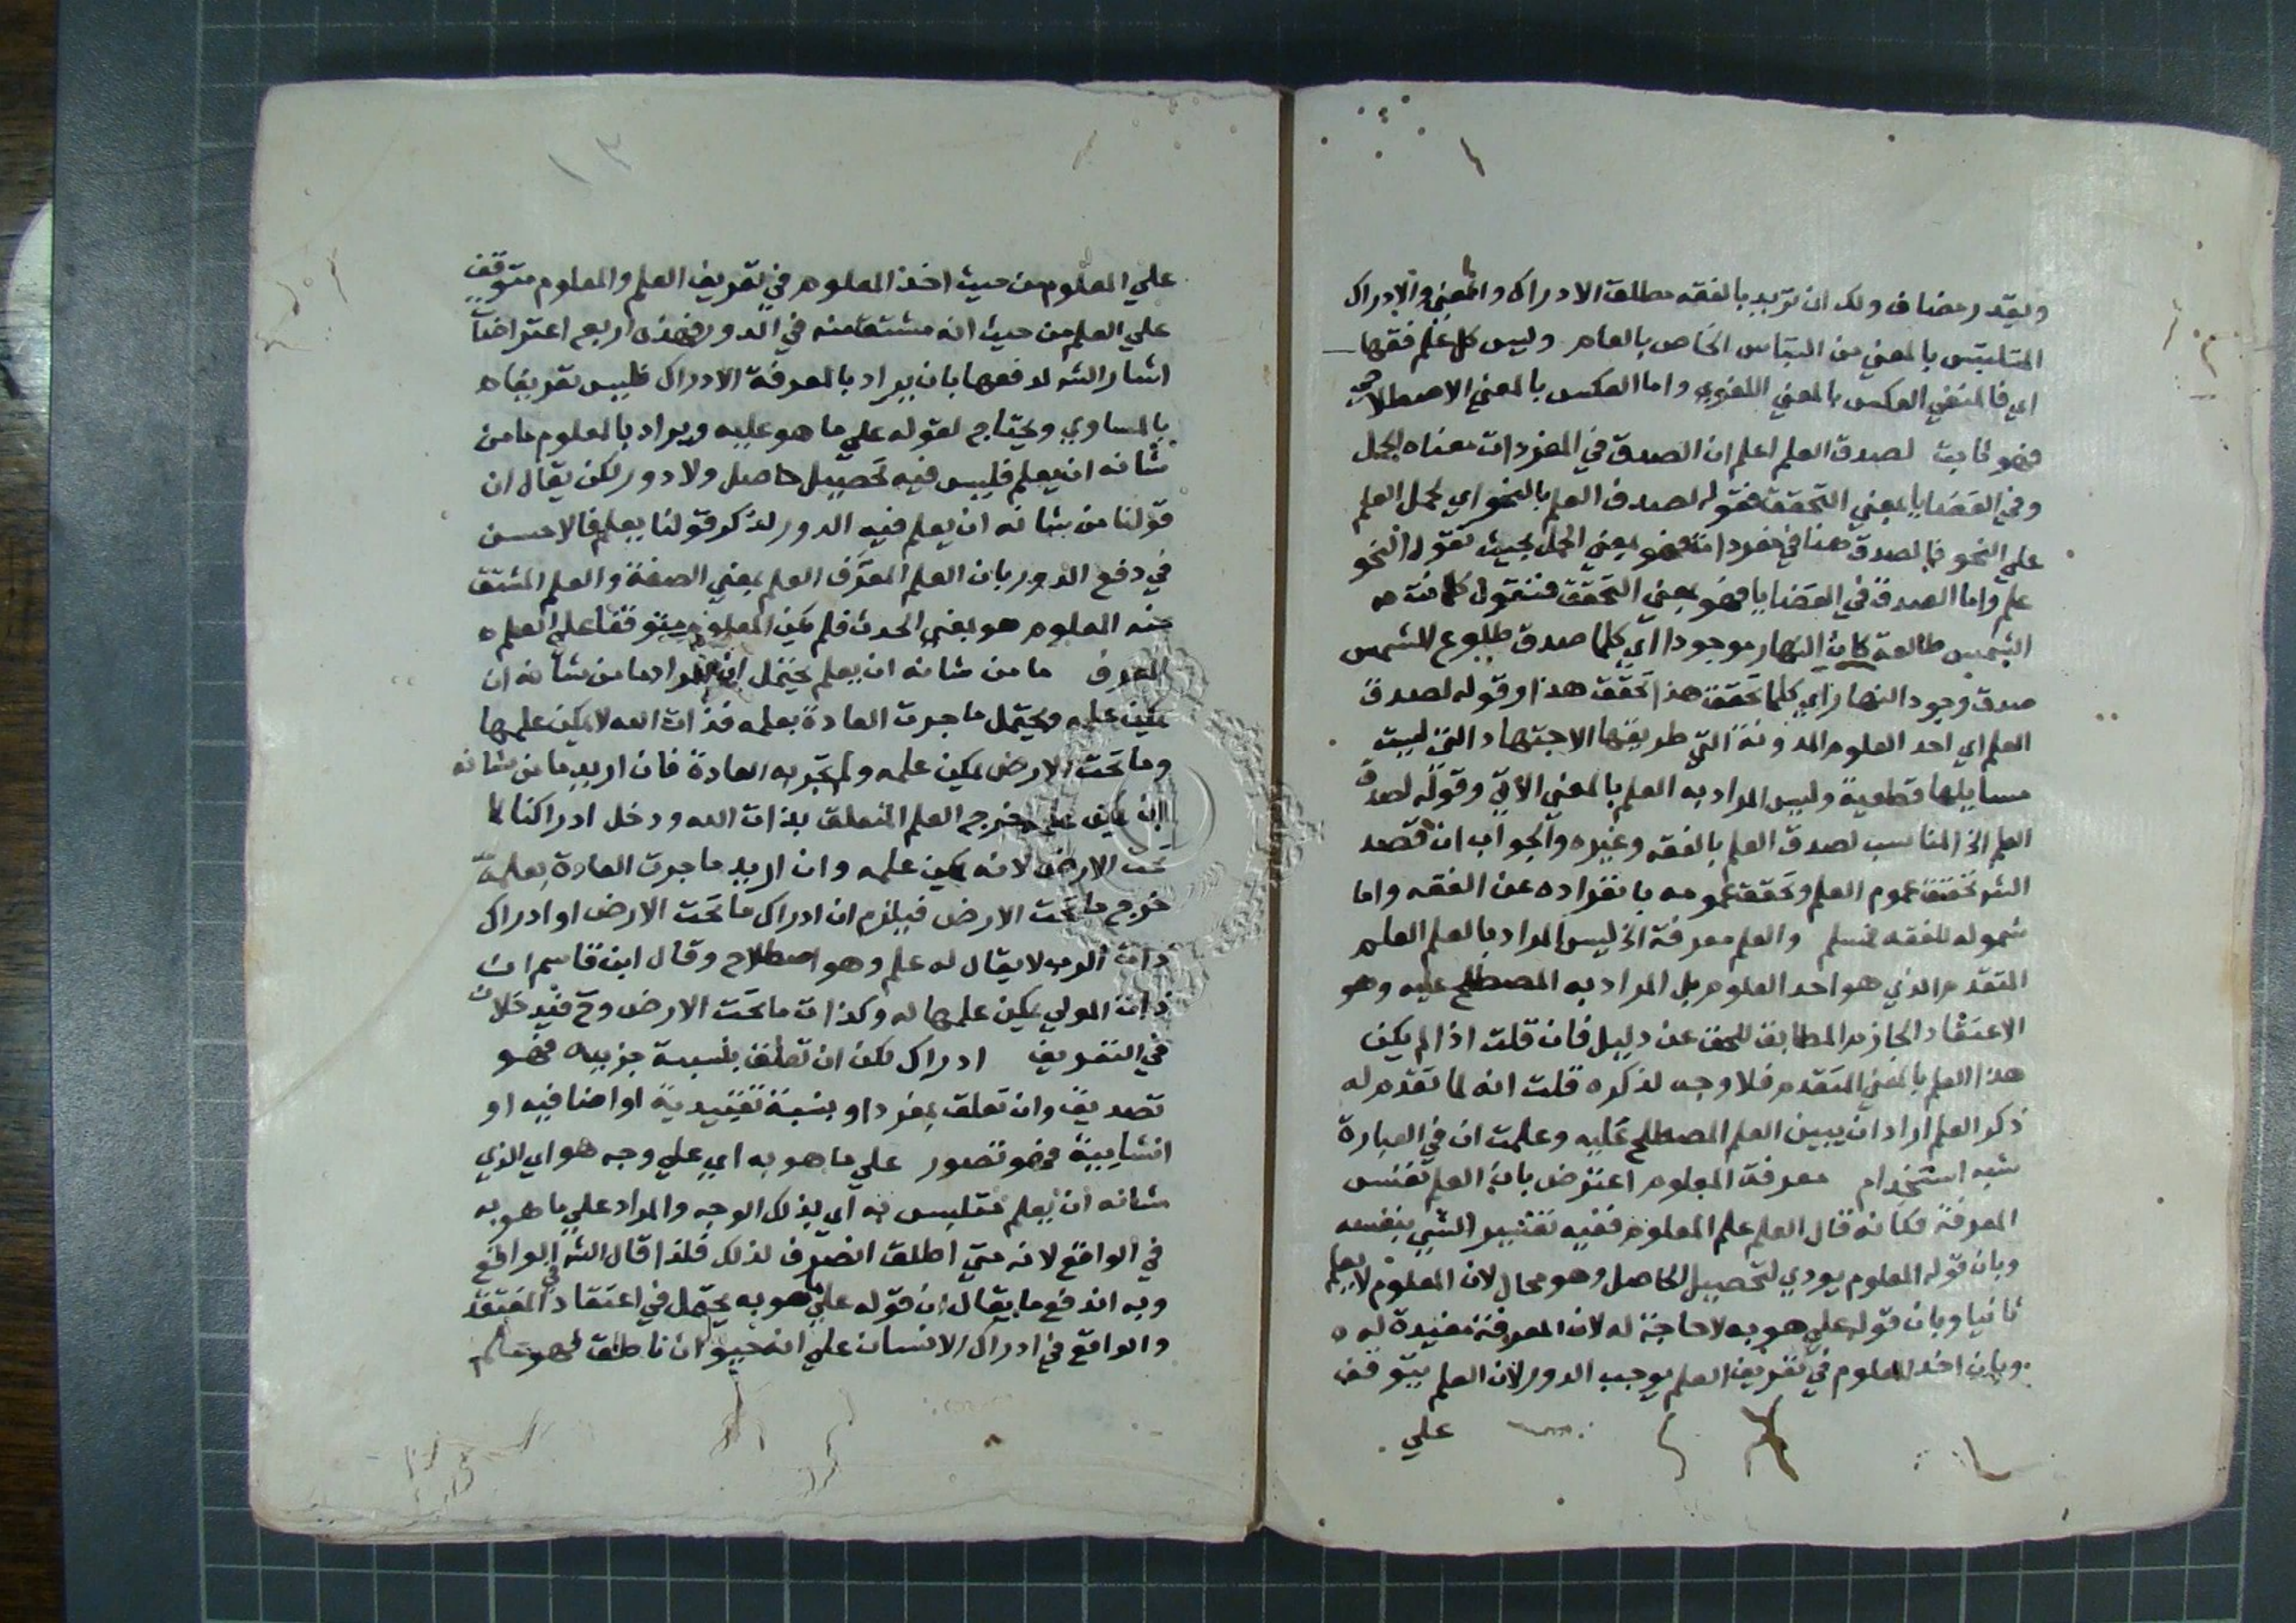 ويقدر مضاف ولك ان تريد بالفقه مطلق الادراك والمعني والادراك
المتلبس بالمعني من التباس الخاص بالعام وليس كل علم فقها
اي فالمنفي العكس بالمعني اللغوي واما العكس بالمعني الاصطلاحي
فهو ثابت لصدق العلم اعلم ان الصدق في المفردات معناه الحمل
وفي القضايا بمعني التحقق فقوله لصدق العلم بالنحو اي لحمل العلم
علي النحو فالصدق هنا في مفردات فهو بمعني الحمل بحيث تقول النحو
علم واما الصدق في القضايا فهو بمعني التحقق فنقول كلما كانت
الشمس طالعة كان النهار موجودا اي كلما صدق طلوع الشمس
صدق وجود النهار اي كلما تحقق هذا تحقق هذا وقوله لصدق
العلم اي احد العلوم المدونة التي طريقها الاجتهاد التي ليست
مسايلها قطعية وليس المراد به العلم بالمعني الاتي وقوله لصدق
العلم الخ المناسب لصدق العلم بالفقه وغيره والجواب ان قصد
الشه تحقق عموم العلم وتحقق عمومه بانفراده عن الفقه واما
شموله للفقه فمسلم والعلم معرفة الخ ليس المراد بالعلم العلم
المتقدم الذي هو احد العلوم بل المراد به المصطلح عليه وهو
الاعتقاد الجازم المطابق للحق عن دليل فان قلت اذا لم يكن
هذا العلم بالمعني المتقدم فلا وجه لذكره قلت انه لما تقدم له
ذكر العلم اراد ان يبين العلم المصطلح عليه وعلمت ان في العبارة
شبه استخدام معرفة المعلوم اعترض بان العلم نفس
المعرفة فكانه قال العلم علم المعلوم ففيه تفسير الشي بنفسه
وبان قوله المعلوم يودي لتحصيل الحاصل وهو محال لان المعلوم لا يعلم
ثانيا وبان قوله علي ما هو به لا حاجة له لان المعرفة مفيدة له
وبان اخذ المعلوم في تعريف العلم يوجب الدور لان العلم يتوقف
علي
١٣
علي المعلوم من حيث اخذ المعلوم في تعريف العلم والمعلوم متوقف
علي العلم من حيث انه مشتق منه في الدور فهذه اربع اعتراضات
اشار الشه لدفعها بان يراد بالمعرفة الادراك فليس تعريفا
بالمساوي ويحتاج لقوله علي ما هو عليه ويراد بالمعلوم ما من
شانه ان يعلم فليس فيه تحصيل حاصل ولا دور لكن يقال ان
قولنا من شانه ان يعلم فيه الدور لذكر قولنا يعلم فالاحسن
في دفع الدور بان العلم المعرف العلم بمعني الصفة والعلم المشتق
منه المعلوم هو بمعني الحدث فلم يكن المعلوم متوقفا علي العلم
المعرف ما من شانه ان يعلم يحتمل ان المراد ما من شانه ان
يمكن علمه ويحتمل ما جرت العادة بعلمه فذات الله لا يمكن علمها
وما تحت الارض يمكن علمه ولم تجر به العادة فان اريد ما من شانه
ان يمكن علمه خرج العلم المتعلق بذات الله ودخل ادراكنا لما
تحت الارض لانه يمكن علمه وان اريد ما جرت العادة بعلمه
خرج ما تحت الارض فيلزم ان ادراك ما تحت الارض او ادراك
ذات الرب لا يقال له علم وهو اصطلاح وقال ابن قاسم ان
ذات المولي يمكن علمها له وكذات ما تحت الارض وح فيدخلان
في التعريف ادراك لكن ان تعلق بنسبة جزييه فهو
تصديق وان تعلق بمفرد او بنسبة تقييدية او اضافيه او
انشاييية فهو تصور علي ما هو به اي علي وجه هو اي الذي
شانه ان يعلم متلبس به اي بذلك الوجه والمراد علي ما هو به
في الواقع لانه متي اطلق انصرف لذلك فلذا قال الشه في الواقع
وبه اندفع ما يقال ان قوله علي ما هو به يحتمل في اعتقاد المعتقد
والواقع في ادراك الانسان علي انه حيوان ناطق فهو علم